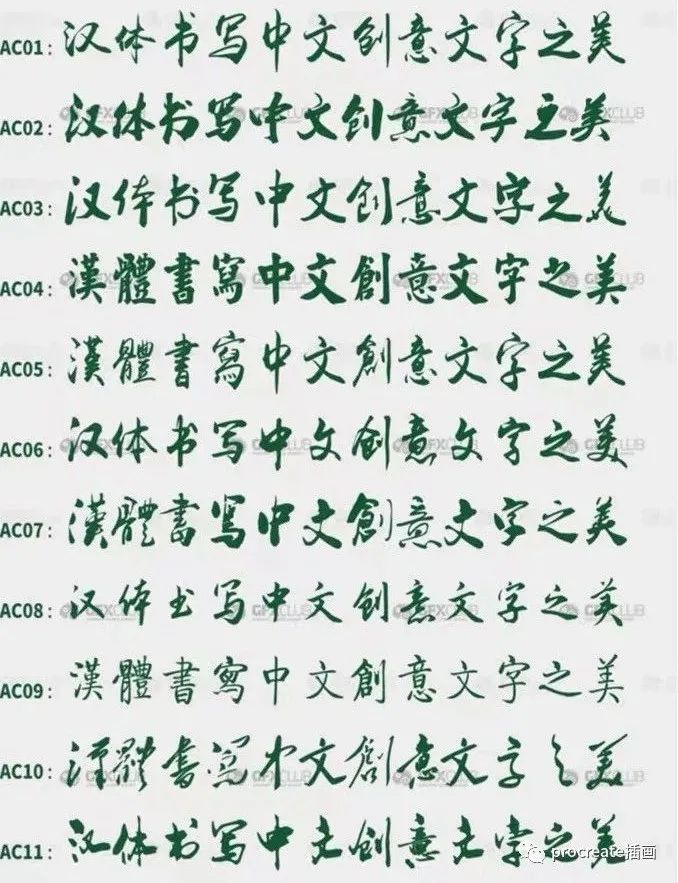 AC01: 汉体书写中文创意文字之美
AC02: 汉体书写中文创意文字之美
AC03: 汉体书写中文创意文字之美
AC04: 漢體書寫中文創意文字之美
AC05: 漢體書寫中文創意文字之美
AC06: 汉体书写中文创意文字之美
AC07: 漢體書寫中文創意文字之美
AC08: 汉体书写中文创意文字之美
AC09: 漢體書寫中文創意文字之美
AC10: 漢體書寫中文創意文字之美
AC11: 汉体书写中文创意文字之美
procreate插画
GFXCLUB